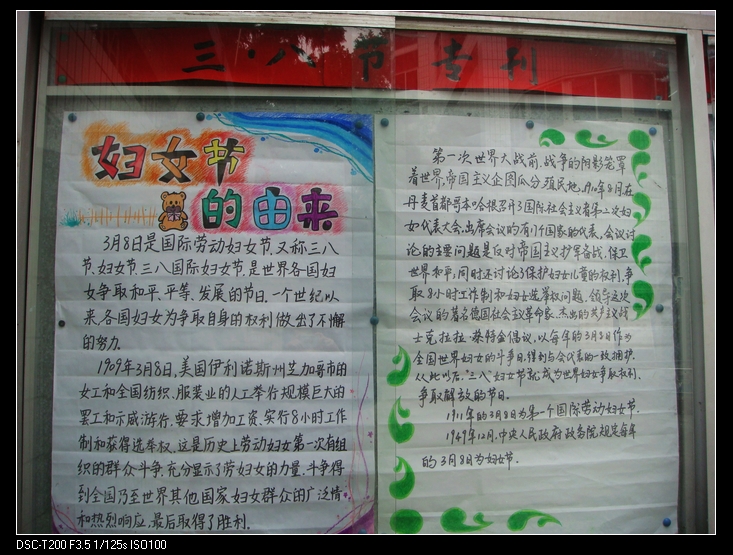 三·八节专刊
妇女节
的由来
3月8日是国际劳动妇女节,又称三八
节、妇女节、三八国际妇女节,是世界各国妇
女争取和平、平等、发展的节日。一个世纪以
来,各国妇女为争取自身的权利做出了不懈
的努力。
1909年3月8日,美国伊利诺斯州芝加哥市的
女工和全国纺织、服装业的工人举行规模巨大的
罢工和示威游行,要求增加工资、实行8小时工作
制和获得选举权。这是历史上劳动妇女第一次有组
织的群众斗争,充分显示了劳妇女的力量。斗争得
到全国乃至世界其他国家妇女群众的广泛情
和热烈响应,最后取得了胜利。
第一次世界大战前,战争的阴影笼罩
着世界,帝国主义企图瓜分殖民地。1910年8月在
丹麦首都哥本哈根召开了国际社会主义者第二次妇
女代表大会。出席会议的有17个国家的代表,会议讨
论的主要问题是反对帝国主义扩军备战,保卫
世界和平,同时还讨论了保护妇女儿童的权利,争
取8小时工作制和妇女选举权问题。领导这次
会议的著名德国社会主义革命家、杰出的共产主义战
士克拉拉·蔡特金倡议,以每年的3月8日作为
全国世界妇女的斗争日,得到与会代表的一致拥护。
从此以后,"三八"妇女节就成为世界妇女争取权利、
争取解放的节日。
1911年的3月8日为第一个国际劳动妇女节。
1949年12月,中央人民政府政务院规定每年
的3月8日为妇女节。
DSC-T200 F3.5 1/125s ISO100